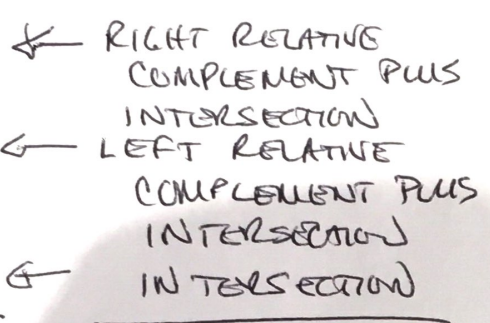 ← RIGHT RELATIVE
COMPLEMENT PLUS
INTERSECTION
← LEFT RELATIVE
COMPLEMENT PLUS
INTERSECTION
← INTERSECTION